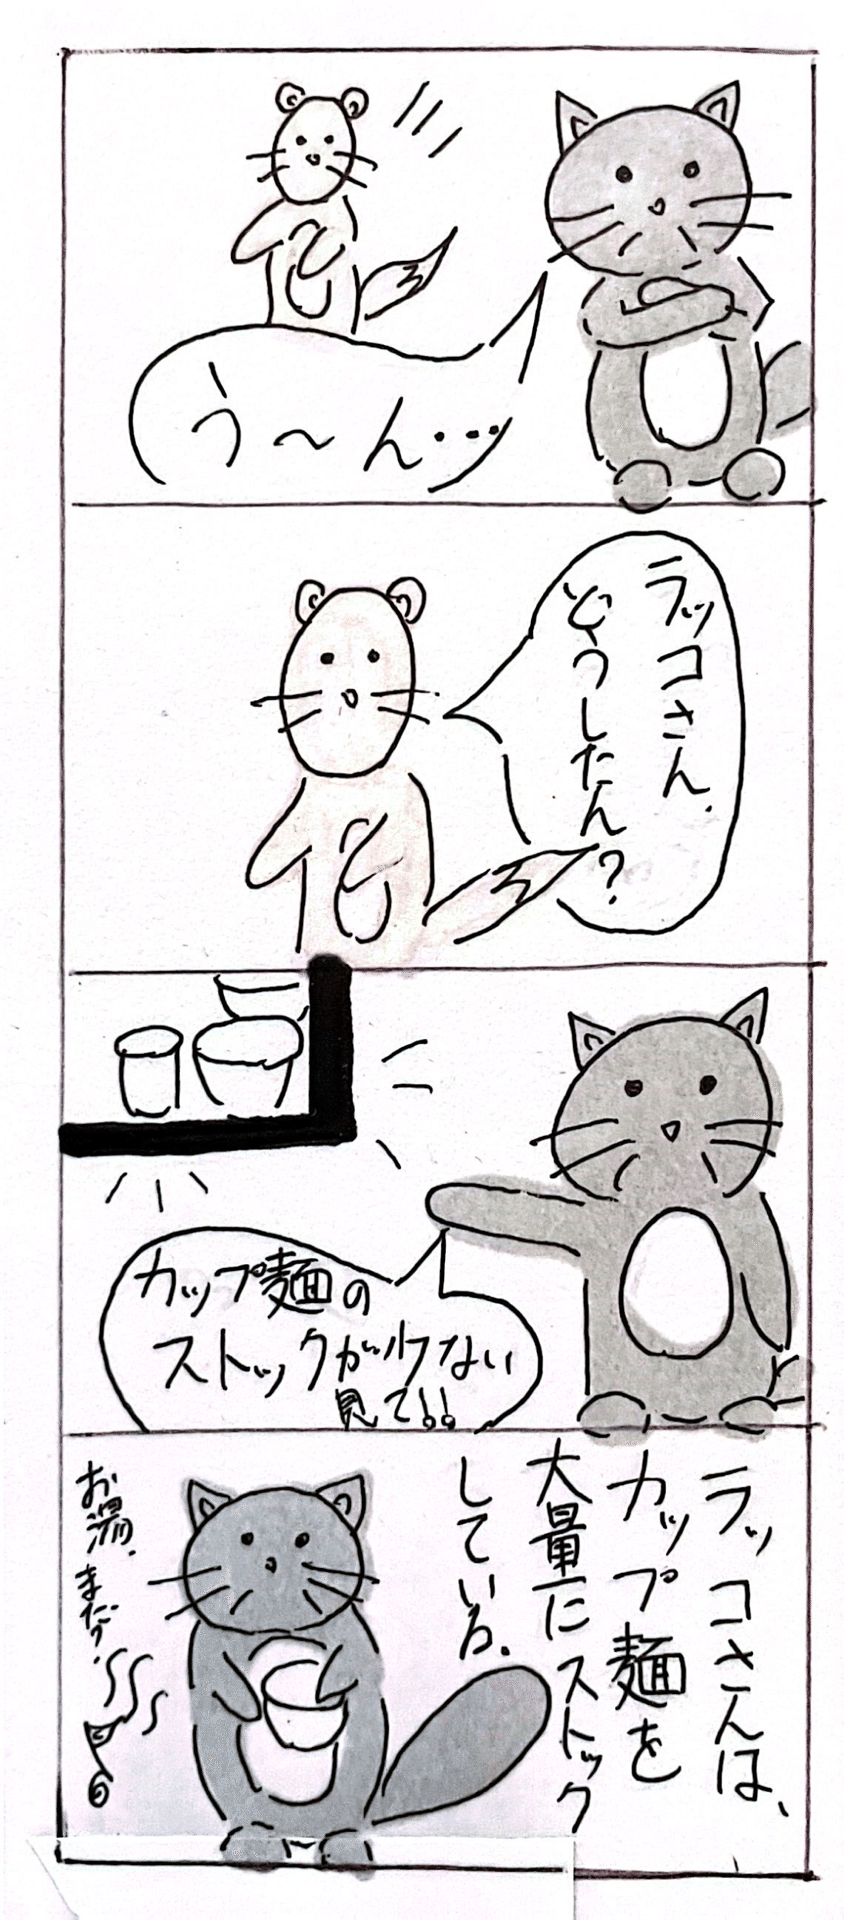 う〜ん…
ラッコさん.
どうしたん?
カップ麺の
ストックが少ない
見て!!
ラッコさんは、
カップ麺を
大量にストック
している.
お湯.まだか.